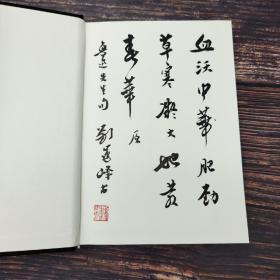 血沃中華肥勁
草寒凝大地發
春華 原
魯迅先生句 劉